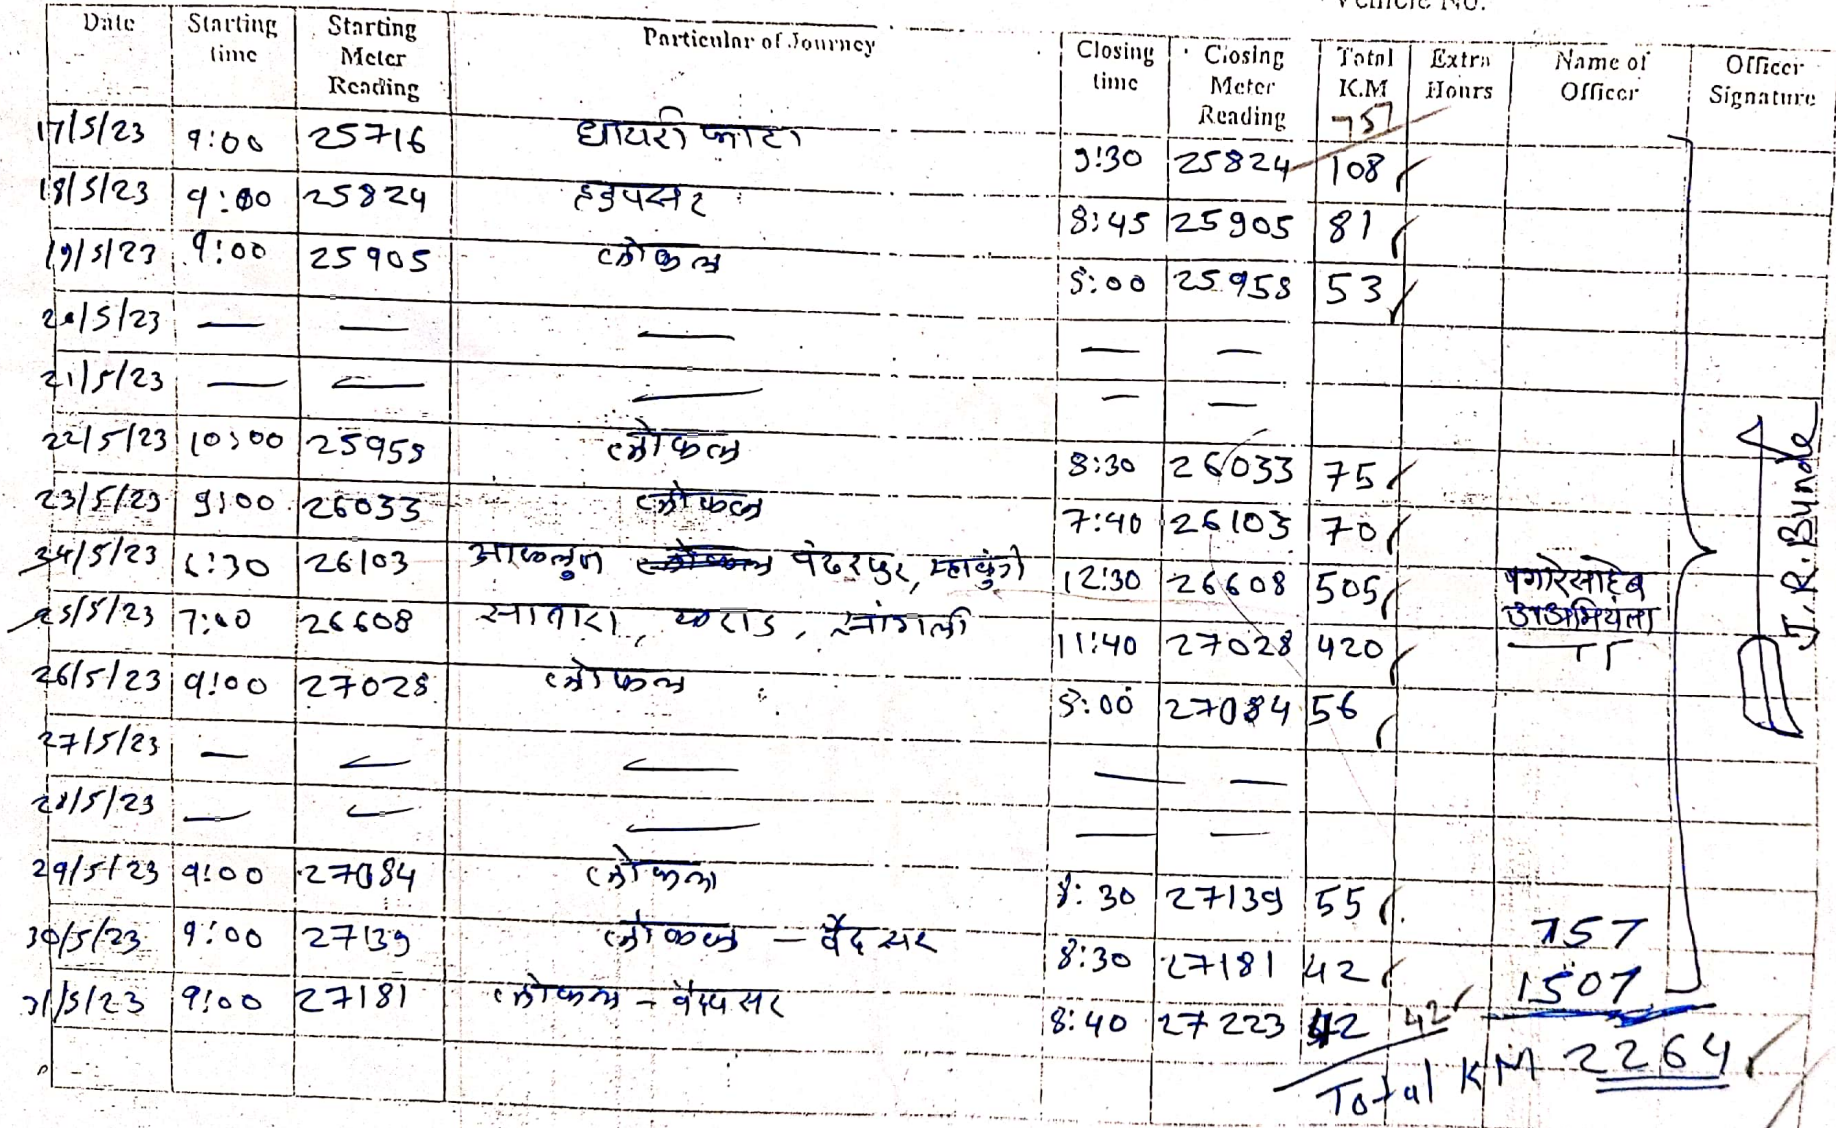 Vehicle No.
Date Starting time Starting Meter Reading Particular of Journey Closing time Closing Meter Reading Total K.M Extra Hours Name of Officer Officer Signature
757
17/5/23 9:00 25716 धायरी फाटा 9:30 25824 108
18/5/23 9:00 25824 हडपसर 8:45 25905 81
19/5/23 9:00 25905 लोकल 8:00 25958 53
20/5/23 — — — — —
21/5/23 — — — — —
22/5/23 10:00 25958 लोकल 8:30 26033 75
23/5/23 9:00 26033 लोकल 7:40 26103 70
24/5/23 6:30 26103 पंढरपुर, 12:30 26608 505 पगारेसाहेब
25/5/23 7:00 26608 सातारा, कराड, सांगली 11:40 27028 420
26/5/23 9:00 27028 लोकल 8:00 27084 56
27/5/23 — — — — —
28/5/23 — — — — —
29/5/23 9:00 27084 लोकल 8:30 27139 55
30/5/23 9:00 27139 लोकल — वैद्य सर 8:30 27181 42
31/5/23 9:00 27181 लोकल - वैद्य सर 8:40 27223 42 42
J. R. Bunde
757
1507
Total KM 2264